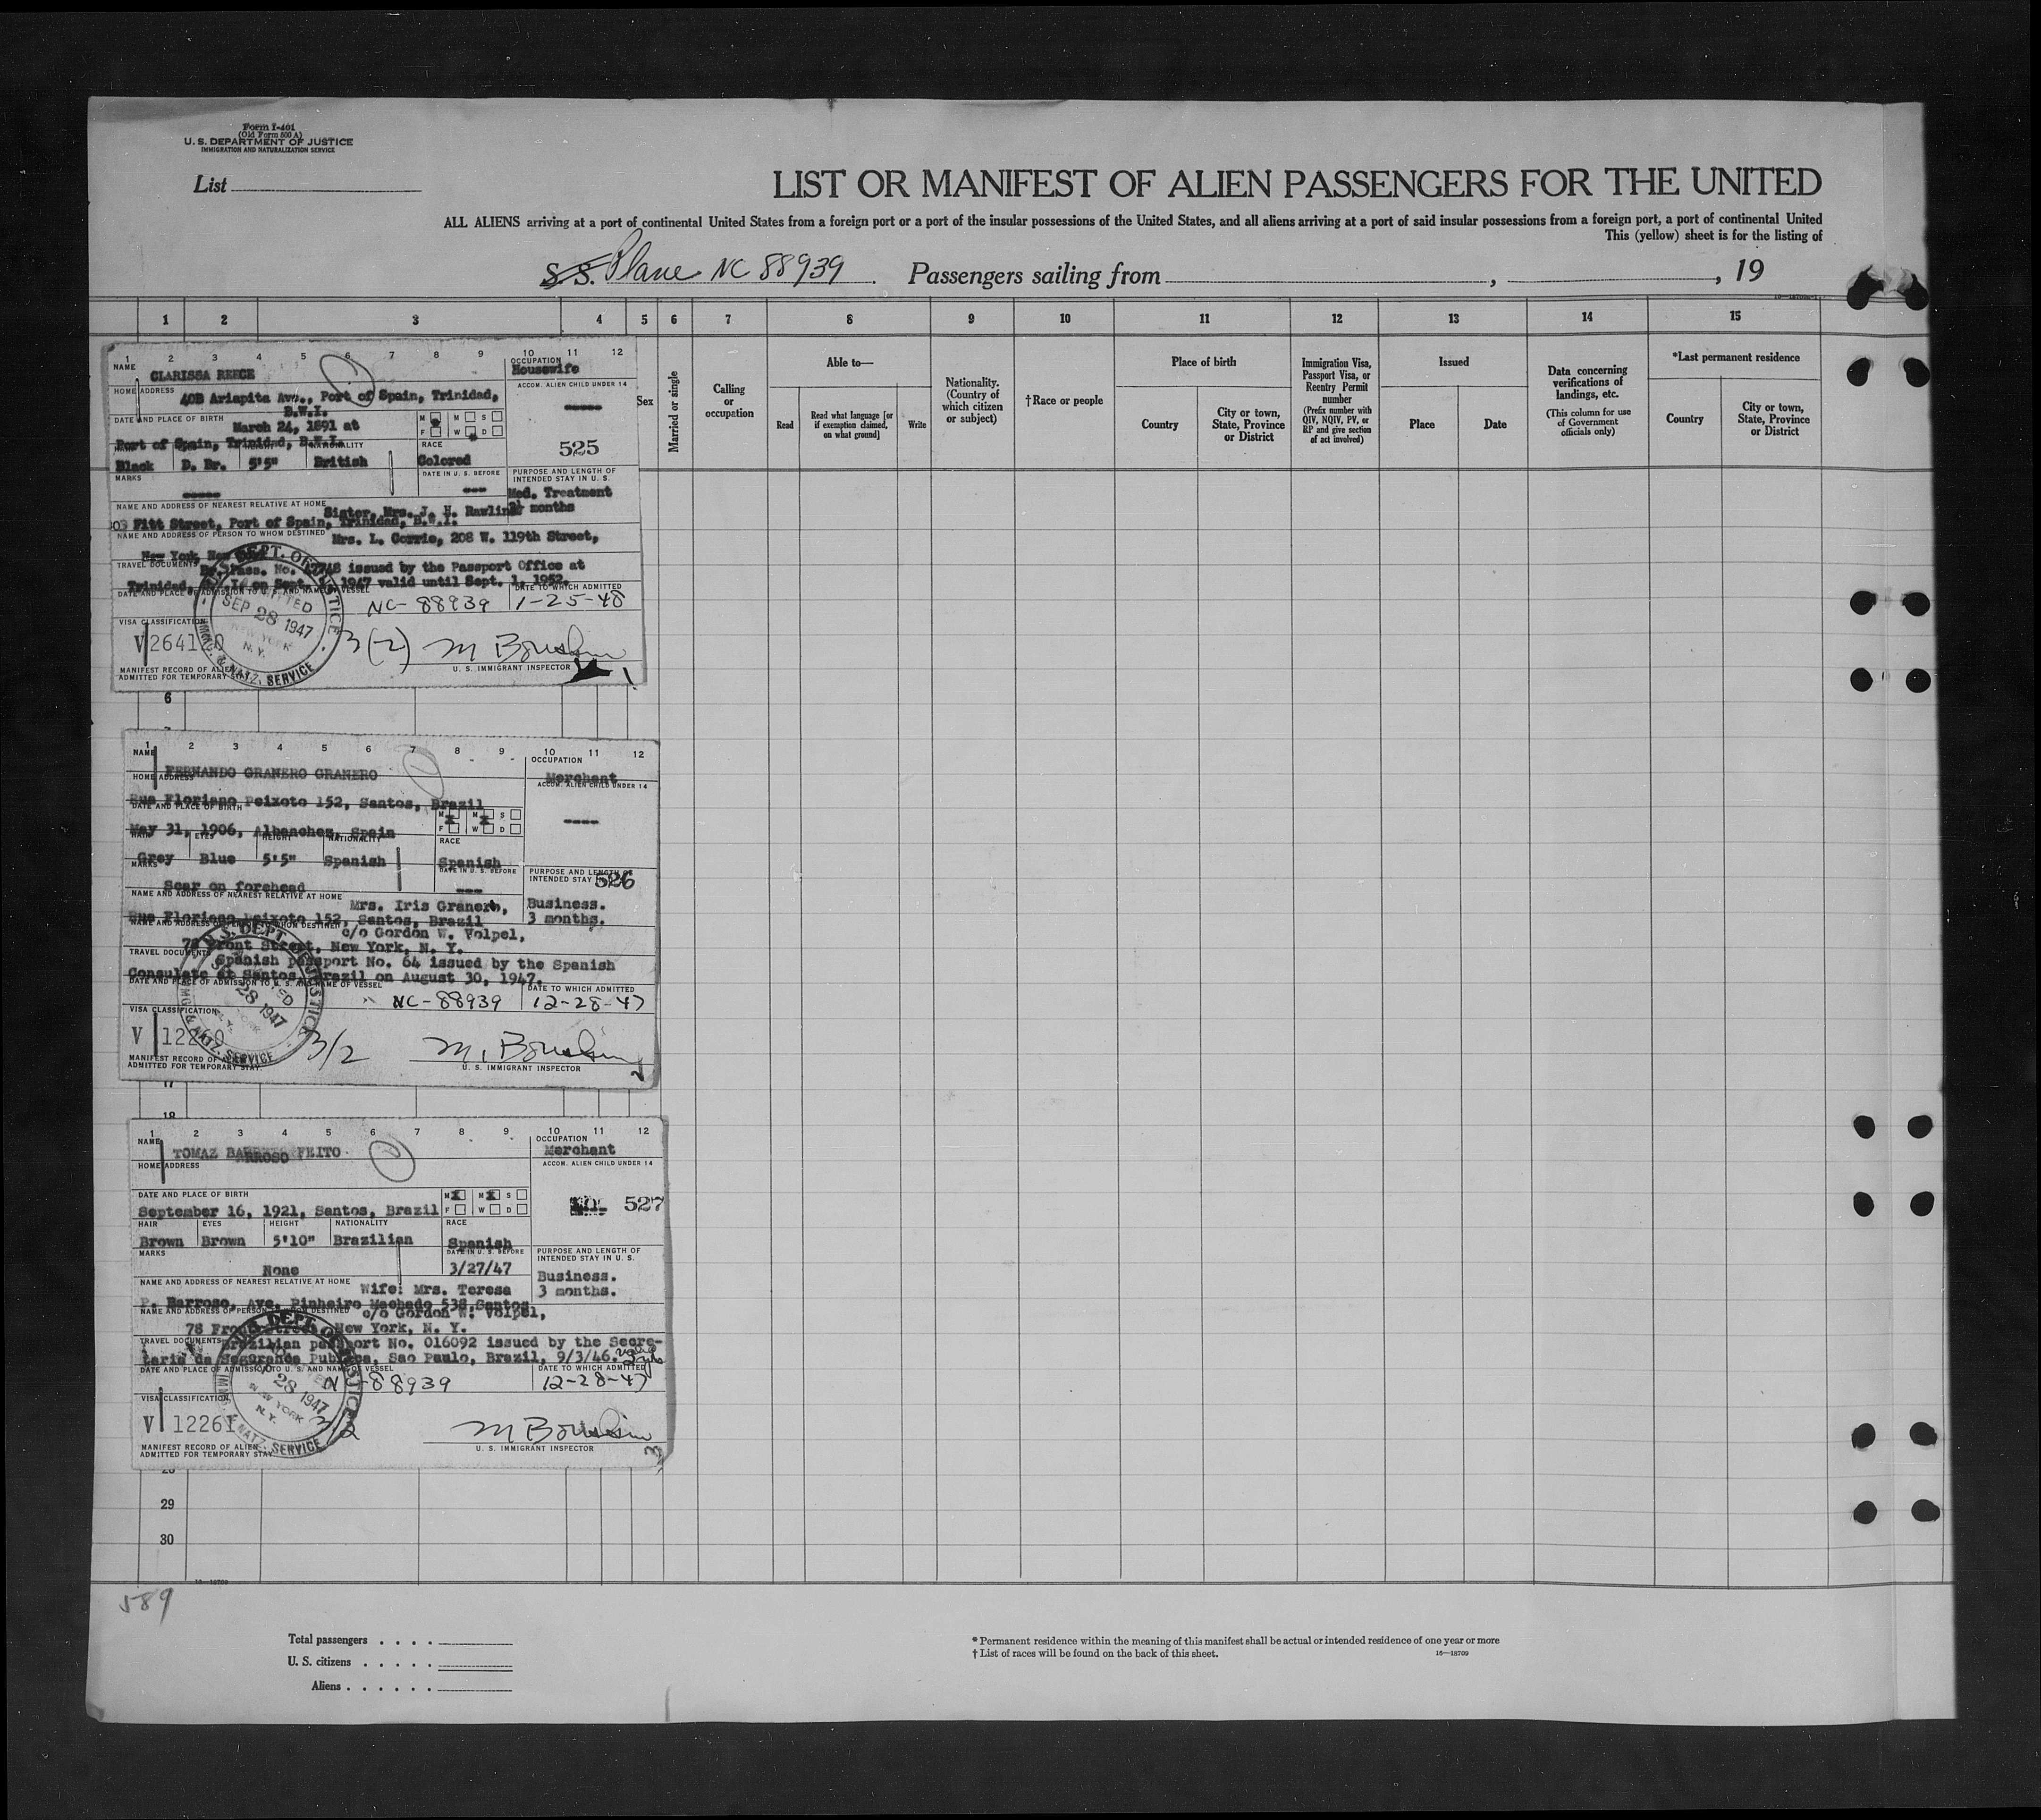 Form I-401
(Old Form 500 A)
U. S. DEPARTMENT OF JUSTICE
IMMIGRATION AND NATURALIZATION SERVICE
List
LIST OR MANIFEST OF ALIEN PASSENGERS FOR THE UNITED
ALL ALIENS arriving at a port of continental United States from a foreign port or a port of the insular possessions of the United States, and all aliens arriving at a port of said insular possessions from a foreign port, a port of continental United
This (yellow) sheet is for the listing of
S. S. Plane NC 88939. Passengers sailing from , , 19
1 2 3 4 5 6 7 8 9 10 11 12 13 14 15
Sex
Married or single
Calling or occupation
Able to—
Read
Read what language [or if exemption claimed, on what ground]
Write
Nationality. (Country of which citizen or subject)
†Race or people
Place of birth
Country
City or town, State, Province or District
Immigration Visa, Passport Visa, or Reentry Permit number
(Prefix number with QIV, NQIV, PV, or RP and give section of act involved)
Issued
Place
Date
Data concerning verifications of landings, etc.
(This column for use of Government officials only)
*Last permanent residence
Country
City or town, State, Province or District
1 2 3 4 5 6 7 8 9 10 11 12
NAME
CLARISSA REECE
OCCUPATION
Housewife
HOME ADDRESS
40B Ariapita Ave., Port of Spain, Trinidad,
B.W.I.
ACCOM. ALIEN CHILD UNDER 14
-----
DATE AND PLACE OF BIRTH
March 24, 1891 at
Port of Spain, Trinidad, B.W.I.
M F M W S D
525
NATIONALITY RACE
Black D. Br. 5'5" British Colored
MARKS
-----
DATE IN U. S. BEFORE
---
PURPOSE AND LENGTH OF INTENDED STAY IN U. S.
Med. Treatment
months
NAME AND ADDRESS OF NEAREST RELATIVE AT HOME
Sister, Mrs. J. H. Rawlins
Fitt Street, Port of Spain, Trinidad, B.W.I.
NAME AND ADDRESS OF PERSON TO WHOM DESTINED
Mrs. L. Corrie, 208 W. 119th Street,
New York, New York
TRAVEL DOCUMENTS
Br. Pass. No. 47748 issued by the Passport Office at
Trinidad, 1947 valid until Sept. 1, 1952.
DATE AND PLACE OF ADMISSION TO U. S. AND NAME OF VESSEL
NC- 88939
DATE TO WHICH ADMITTED
1-25-48
U.S. DEPT. OF JUSTICE
ADMITTED
SEP 28 1947
NEW YORK
N. Y.
IMMIG. & NATZ. SERVICE
VISA CLASSIFICATION
V 264120
3(2)
M Boushin
U. S. IMMIGRANT INSPECTOR
MANIFEST RECORD OF ALIEN
ADMITTED FOR TEMPORARY STAY
1
6
1 2 3 4 5 6 7 8 9 10 11 12
NAME
FERNANDO GRANERO GRANERO
OCCUPATION
Merchant
HOME ADDRESS
Rua Floriano Peixoto 152, Santos, Brazil
ACCOM. ALIEN CHILD UNDER 14
----
DATE AND PLACE OF BIRTH
May 31, 1906, Albanchez, Spain
M F M W S D
HAIR EYES HEIGHT NATIONALITY RACE
Grey Blue 5'5" Spanish Spanish
MARKS
Scar on forehead
DATE IN U. S. BEFORE
---
PURPOSE AND LENGTH OF INTENDED STAY
526
Business.
3 months.
NAME AND ADDRESS OF NEAREST RELATIVE AT HOME
Mrs. Iris Granero,
Rua Floriano Peixoto 152, Santos, Brazil
NAME AND ADDRESS OF PERSON TO WHOM DESTINED
c/o Gordon W. Volpel,
78 Front Street, New York, N. Y.
TRAVEL DOCUMENTS
Spanish passport No. 64 issued by the Spanish
Consulate at Santos, Brazil on August 30, 1947.
DATE AND PLACE OF ADMISSION TO U. S. AND NAME OF VESSEL
NC-88939
DATE TO WHICH ADMITTED
12-28-47
U.S. DEPT. OF JUSTICE
28 1947
IMMIG. & NATZ. SERVICE
VISA CLASSIFICATION
V 12260
3/2
M. Boushin
U. S. IMMIGRANT INSPECTOR
MANIFEST RECORD OF ALIEN
ADMITTED FOR TEMPORARY STAY
2
17
18
1 2 3 4 5 6 7 8 9 10 11 12
NAME
TOMAZ BARROSO FEITO
OCCUPATION
Merchant
HOME ADDRESS
ACCOM. ALIEN CHILD UNDER 14
527
DATE AND PLACE OF BIRTH
September 16, 1921, Santos, Brazil
M F M W S D
HAIR EYES HEIGHT NATIONALITY RACE
Brown Brown 5'10" Brazilian Spanish
MARKS
None
DATE IN U. S. BEFORE
3/27/47
PURPOSE AND LENGTH OF INTENDED STAY IN U. S.
Business.
3 months.
NAME AND ADDRESS OF NEAREST RELATIVE AT HOME
Wife: Mrs. Teresa
P. Barroso, Ave. Pinheiro Machado 538, Santos
NAME AND ADDRESS OF PERSON TO WHOM DESTINED
c/o Gordon W. Volpel,
78 Front Street, New York, N. Y.
TRAVEL DOCUMENTS
Brazilian passport No. 016092 issued by the Secre-
taria da Seguranda Publica, Sao Paulo, Brazil, 9/3/46. valid
DATE AND PLACE OF ADMISSION TO U. S. AND NAME OF VESSEL
N -88939
DATE TO WHICH ADMITTED
12-28-47
U.S. DEPT. OF JUSTICE
28 1947
NEW YORK
N.Y.
IMMIG. & NATZ. SERVICE
VISA CLASSIFICATION
V 12261
3/2
M Boushin
U. S. IMMIGRANT INSPECTOR
MANIFEST RECORD OF ALIEN
ADMITTED FOR TEMPORARY STAY
3
29
30
589
Total passengers . . . .
U. S. citizens . . . . .
Aliens . . . . . .
* Permanent residence within the meaning of this manifest shall be actual or intended residence of one year or more
† List of races will be found on the back of this sheet.
16—18709